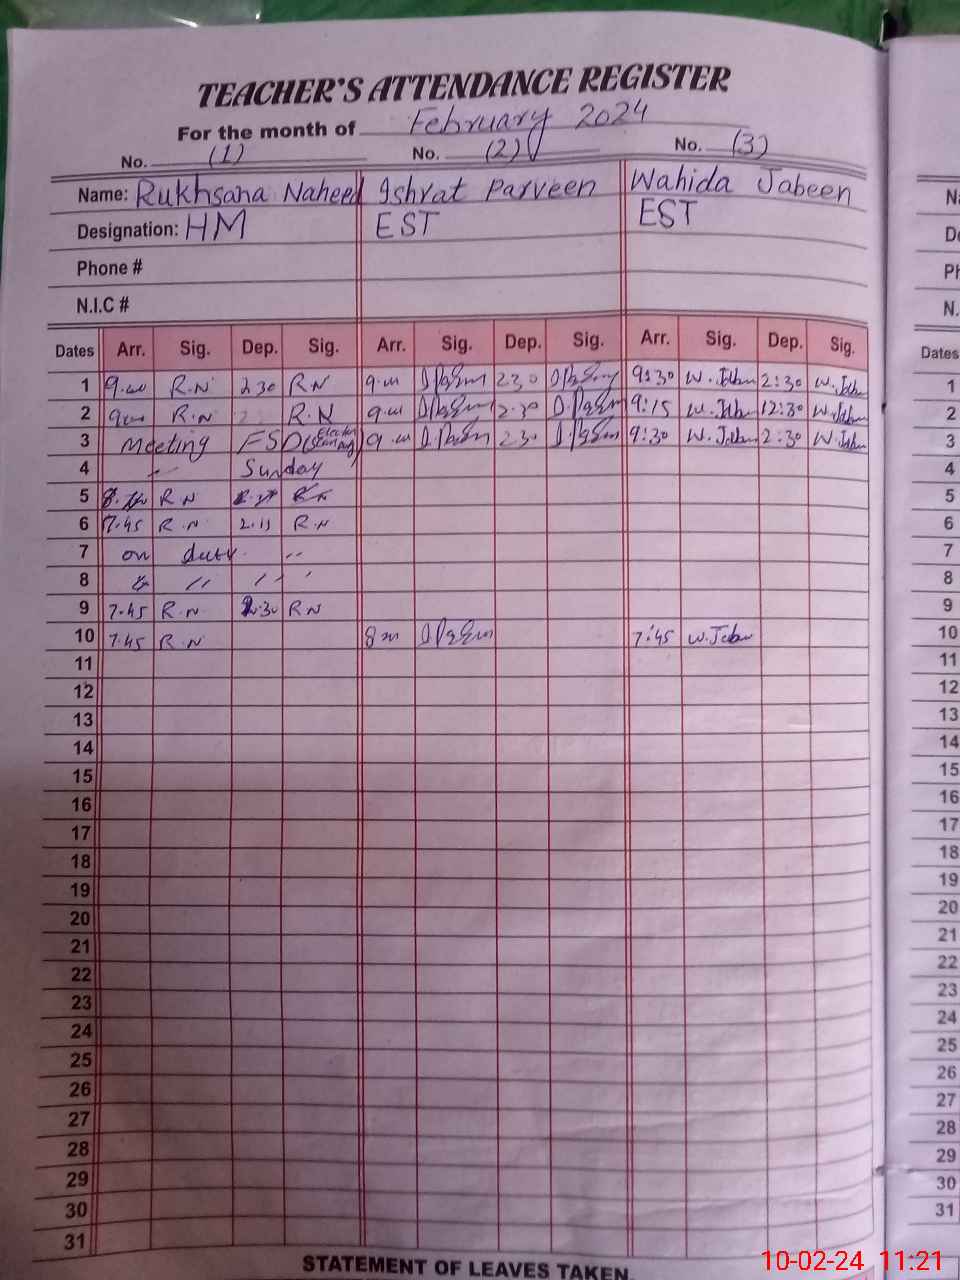 TEACHER'S ATTENDANCE REGISTER
For the month of February 2024
No. (1) No. (2) No. (3)
Name: Rukhsana Naheed Ishrat Parveen Wahida Jabeen
Designation: HM EST EST
Phone #
N.I.C #
Dates Arr. Sig. Dep. Sig. Arr. Sig. Dep. Sig. Arr. Sig. Dep. Sig.
1 9.00 R.N 2.30 R.N 9.00 2.30 9:30 W.Jabeen 2:30 W.Jabeen
2 9.00 R.N R.N 9.00 2.30 9:15 W.Jabeen 12:30 W.Jabeen
3 Meeting FSD 9.00 2.30 9:30 W.Jabeen 2:30 W.Jabeen
4 Sunday
5 R.N
6 7.45 R.N 2.15 R.N
7 on duty
8 " "
9 7.45 R.N 2.30 R N
10 7.45 R.N 8.00 7:45 W.Jabeen
11
12
13
14
15
16
17
18
19
20
21
22
23
24
25
26
27
28
29
30
31
STATEMENT OF LEAVES TAKEN
Na
De
Ph
N.
Dates
1
2
3
4
5
6
7
8
9
10
11
12
13
14
15
16
17
18
19
20
21
22
23
24
25
26
27
28
29
30
31
10-02-24 11:21